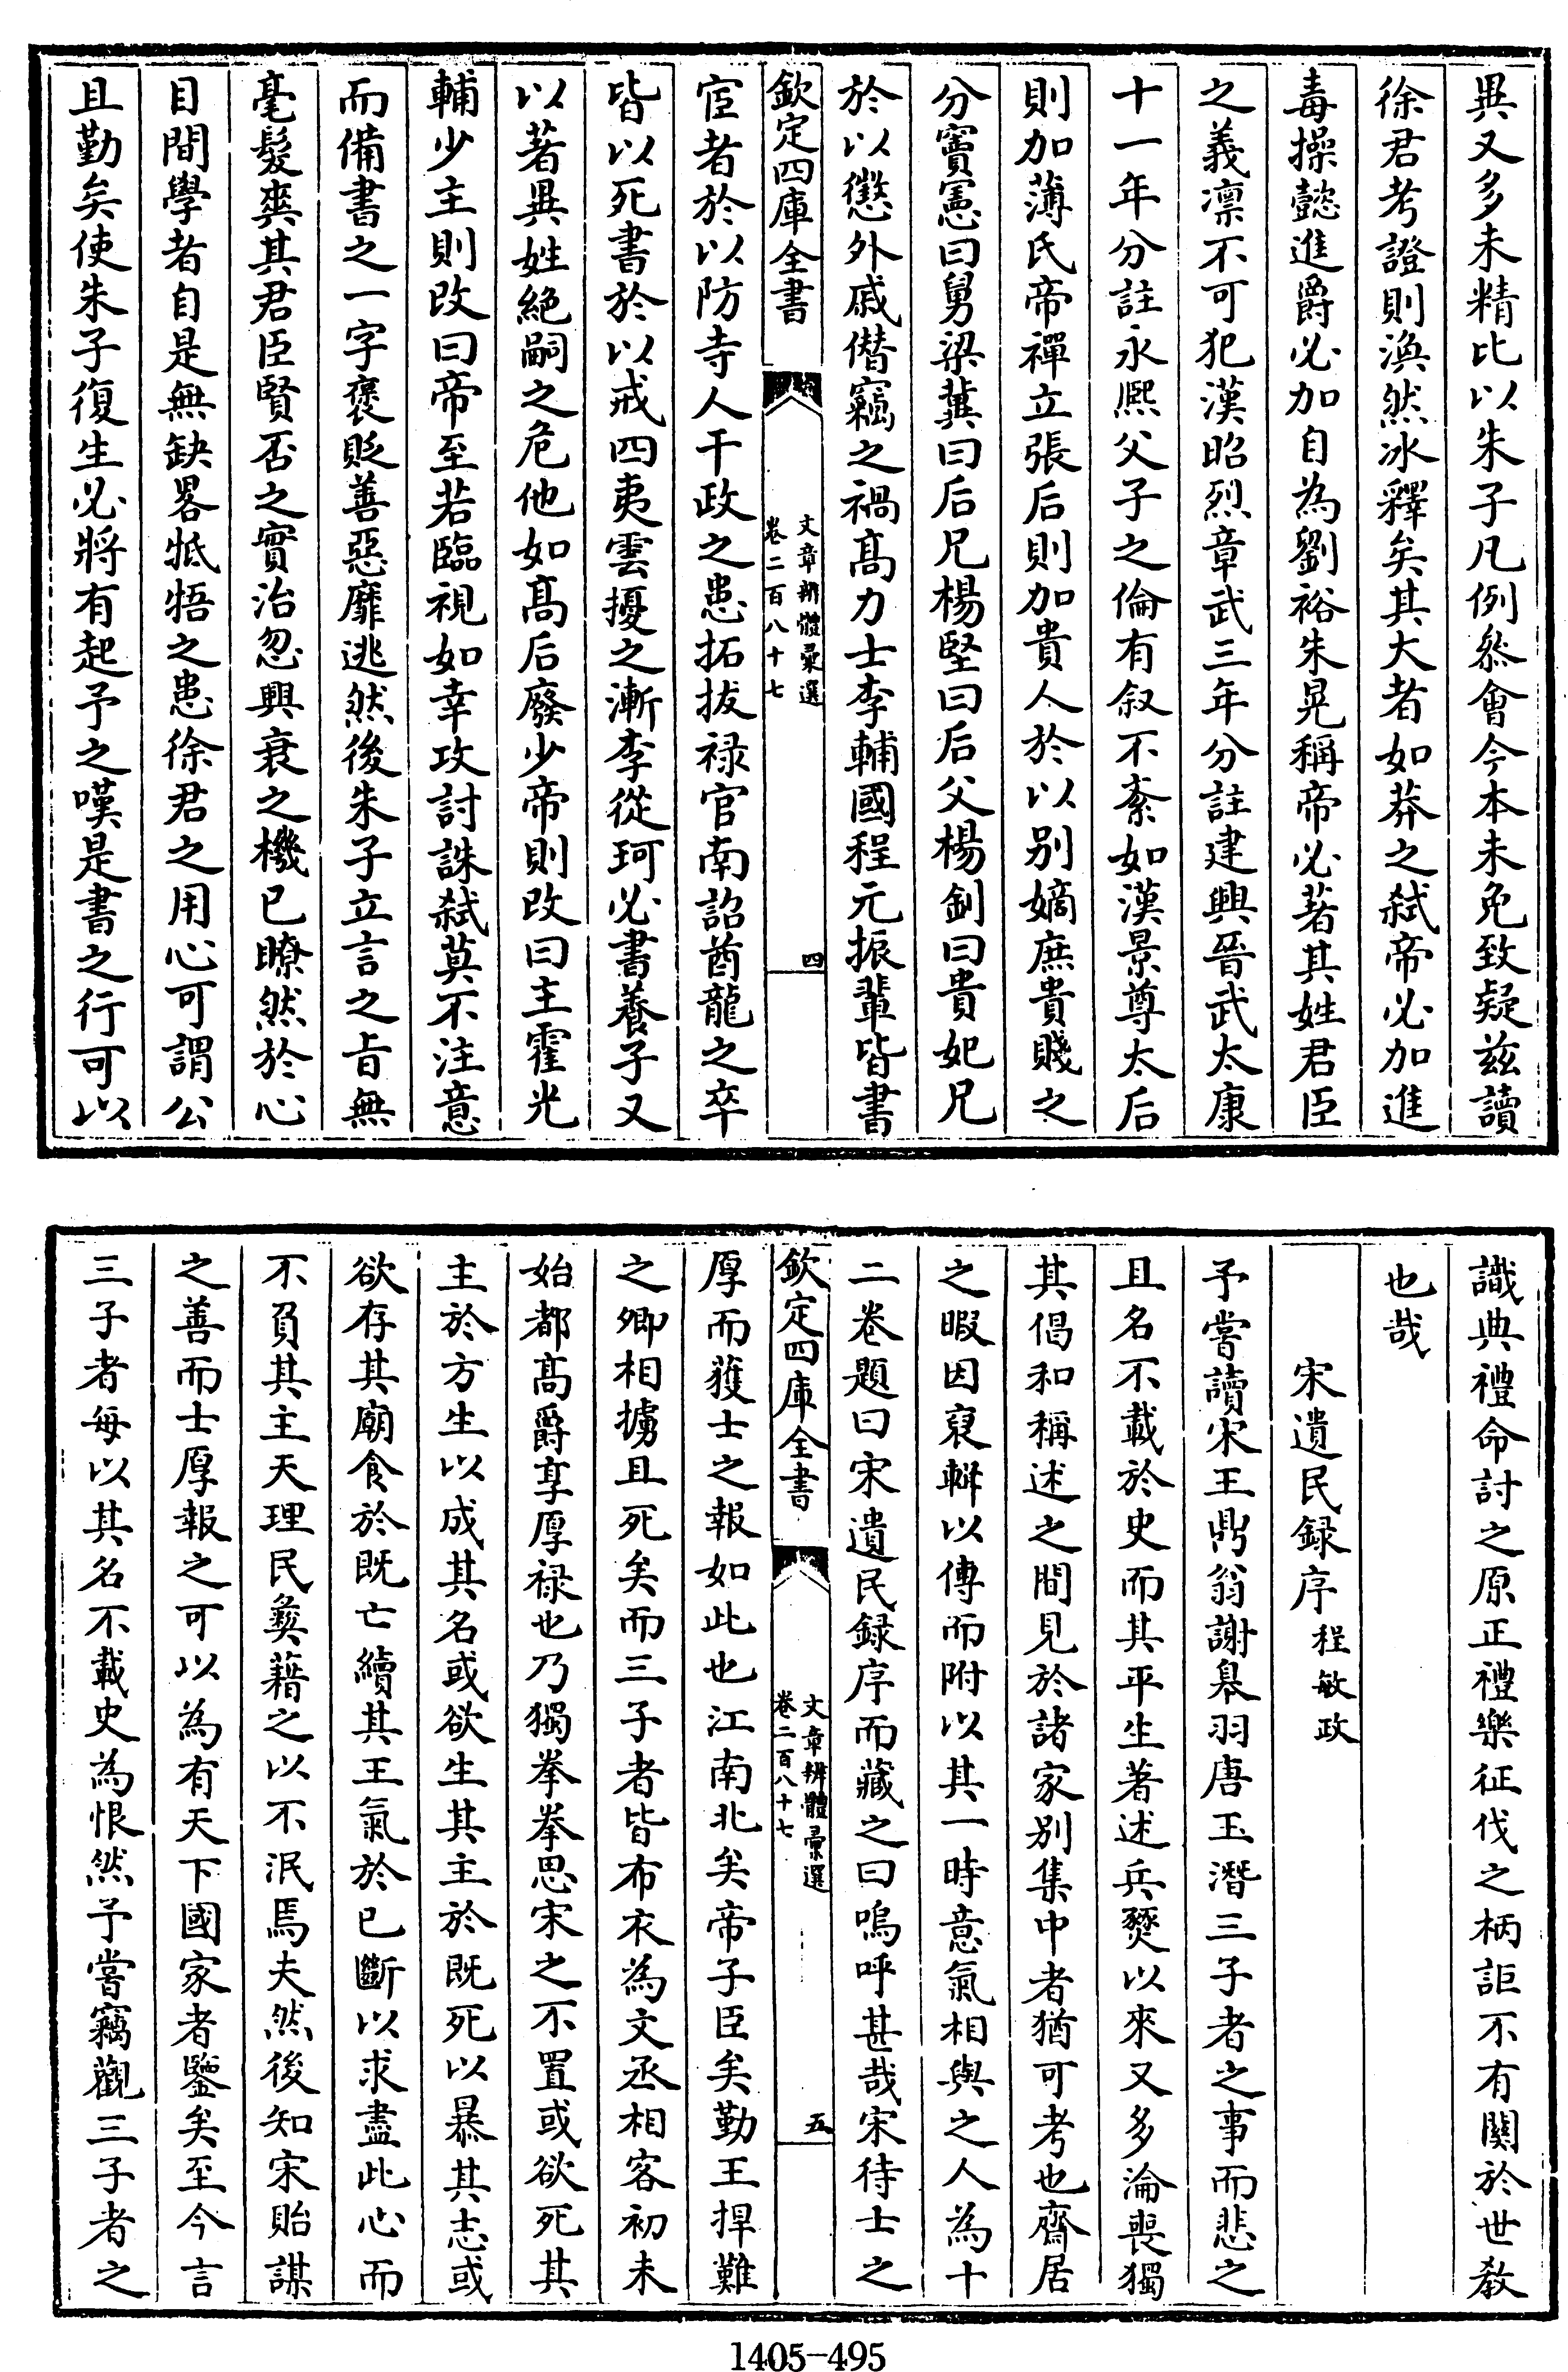 異又多未精比以朱子凡例叅會今本未免致疑兹讀
徐君考證則渙然冰釋矣其大者如莽之弑帝必加進
毒操懿進爵必加自為劉裕朱晃稱帝必著其姓君臣
之義凛不可犯漢昭烈章武三年分註建興晉武太康
十一年分註永熙父子之倫有叙不紊如漢景尊太后
則加薄氏帝禪立張后則加貴人於以别嫡庶貴賤之
分竇憲曰舅梁冀曰后兄楊堅曰后父楊釗曰貴妃兄
於以懲外戚僭竊之禍髙力士李輔國程元振輩皆書
欽定四庫全書
文章辨體彙選
卷二百八十七
四
宦者於以防寺人干政之患拓拔禄官南詔酋龍之卒
皆以死書於以戒四夷雲擾之漸李從珂必書養子又
以著異姓絶嗣之危他如髙后廢少帝則改曰主霍光
輔少主則改曰帝至若臨視如幸攻討誅弑莫不注意
而備書之一字褒貶善惡靡逃然後朱子立言之㫖無
毫髮爽其君臣賢否之實治忽興衰之機已瞭然於心
目間學者自是無缺畧牴牾之患徐君之用心可謂公
且勤矣使朱子復生必將有起予之嘆是書之行可以
識典禮命討之原正禮樂征伐之柄詎不有闗於世教
也哉
宋遺民録序 程敏政
予嘗讀宋王鼎翁謝臯羽唐玉潛三子者之事而悲之
且名不載於史而其平生著述兵燹以來又多淪喪獨
其倡和稱述之間見於諸家别集中者猶可考也齋居
之暇因裒輯以傳而附以其一時意氣相與之人為十
二卷題曰宋遺民録序而藏之曰嗚呼甚哉宋待士之
欽定四庫全書
文章辨體彙選
卷二百八十七
五
厚而獲士之報如此也江南北矣帝子臣矣勤王捍難
之卿相擄且死矣而三子者皆布衣為文丞相客初未
始都髙爵享厚禄也乃獨拳拳思宋之不置或欲死其
主於方生以成其名或欲生其主於既死以暴其志或
欲存其廟食於既亡續其王氣於已斷以求盡此心而
不負其主天理民彜藉之以不泯焉夫然後知宋貽謀
之善而士厚報之可以為有天下國家者鑒矣至今言
三子者每以其名不載史為恨然予嘗竊觀三子者之
1405-495